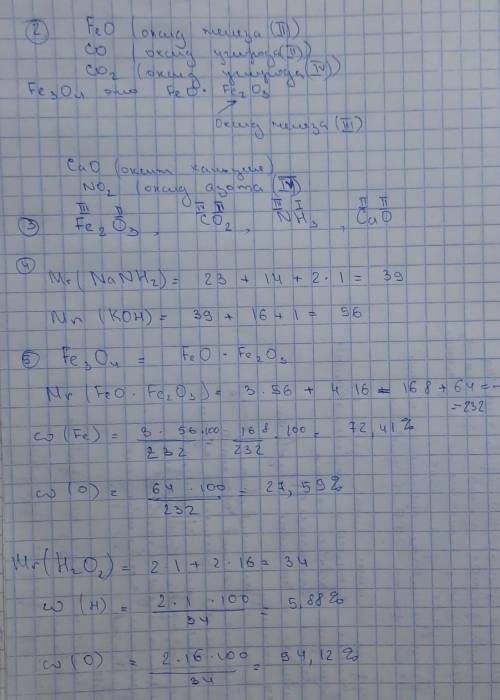 ② FeO (оксид железа (II))
CO (оксид углерода (II))
CO₂ (оксид углерода (IV))
Fe₃O₄ это FeO · Fe₂O₃
оксид железа (III)
CaO (оксид кальция)
NO₂ (оксид азота (IV))
III II IV II III I II II
③ Fe₂O₃, CO₂, NH₃, CaO
④
Mr(NaNH₂) = 23 + 14 + 2·1 = 39
Mr (KOH) = 39 + 16 + 1 = 56
⑤ Fe₃O₄ = FeO · Fe₂O₃
Mr (FeO · Fe₂O₃) = 3·56 + 4·16 = 168 + 64 =
= 232
ω (Fe) = 3·56·100/232 = 168/232 · 100 = 72,41%
ω (O) = 64·100/232 = 27,59%
Mr(H₂O₂) = 2·1 + 2·16 = 34
ω (H) = 2·1·100/34 = 5,88%
ω (O) = 2·16·100/34 = 94,12%